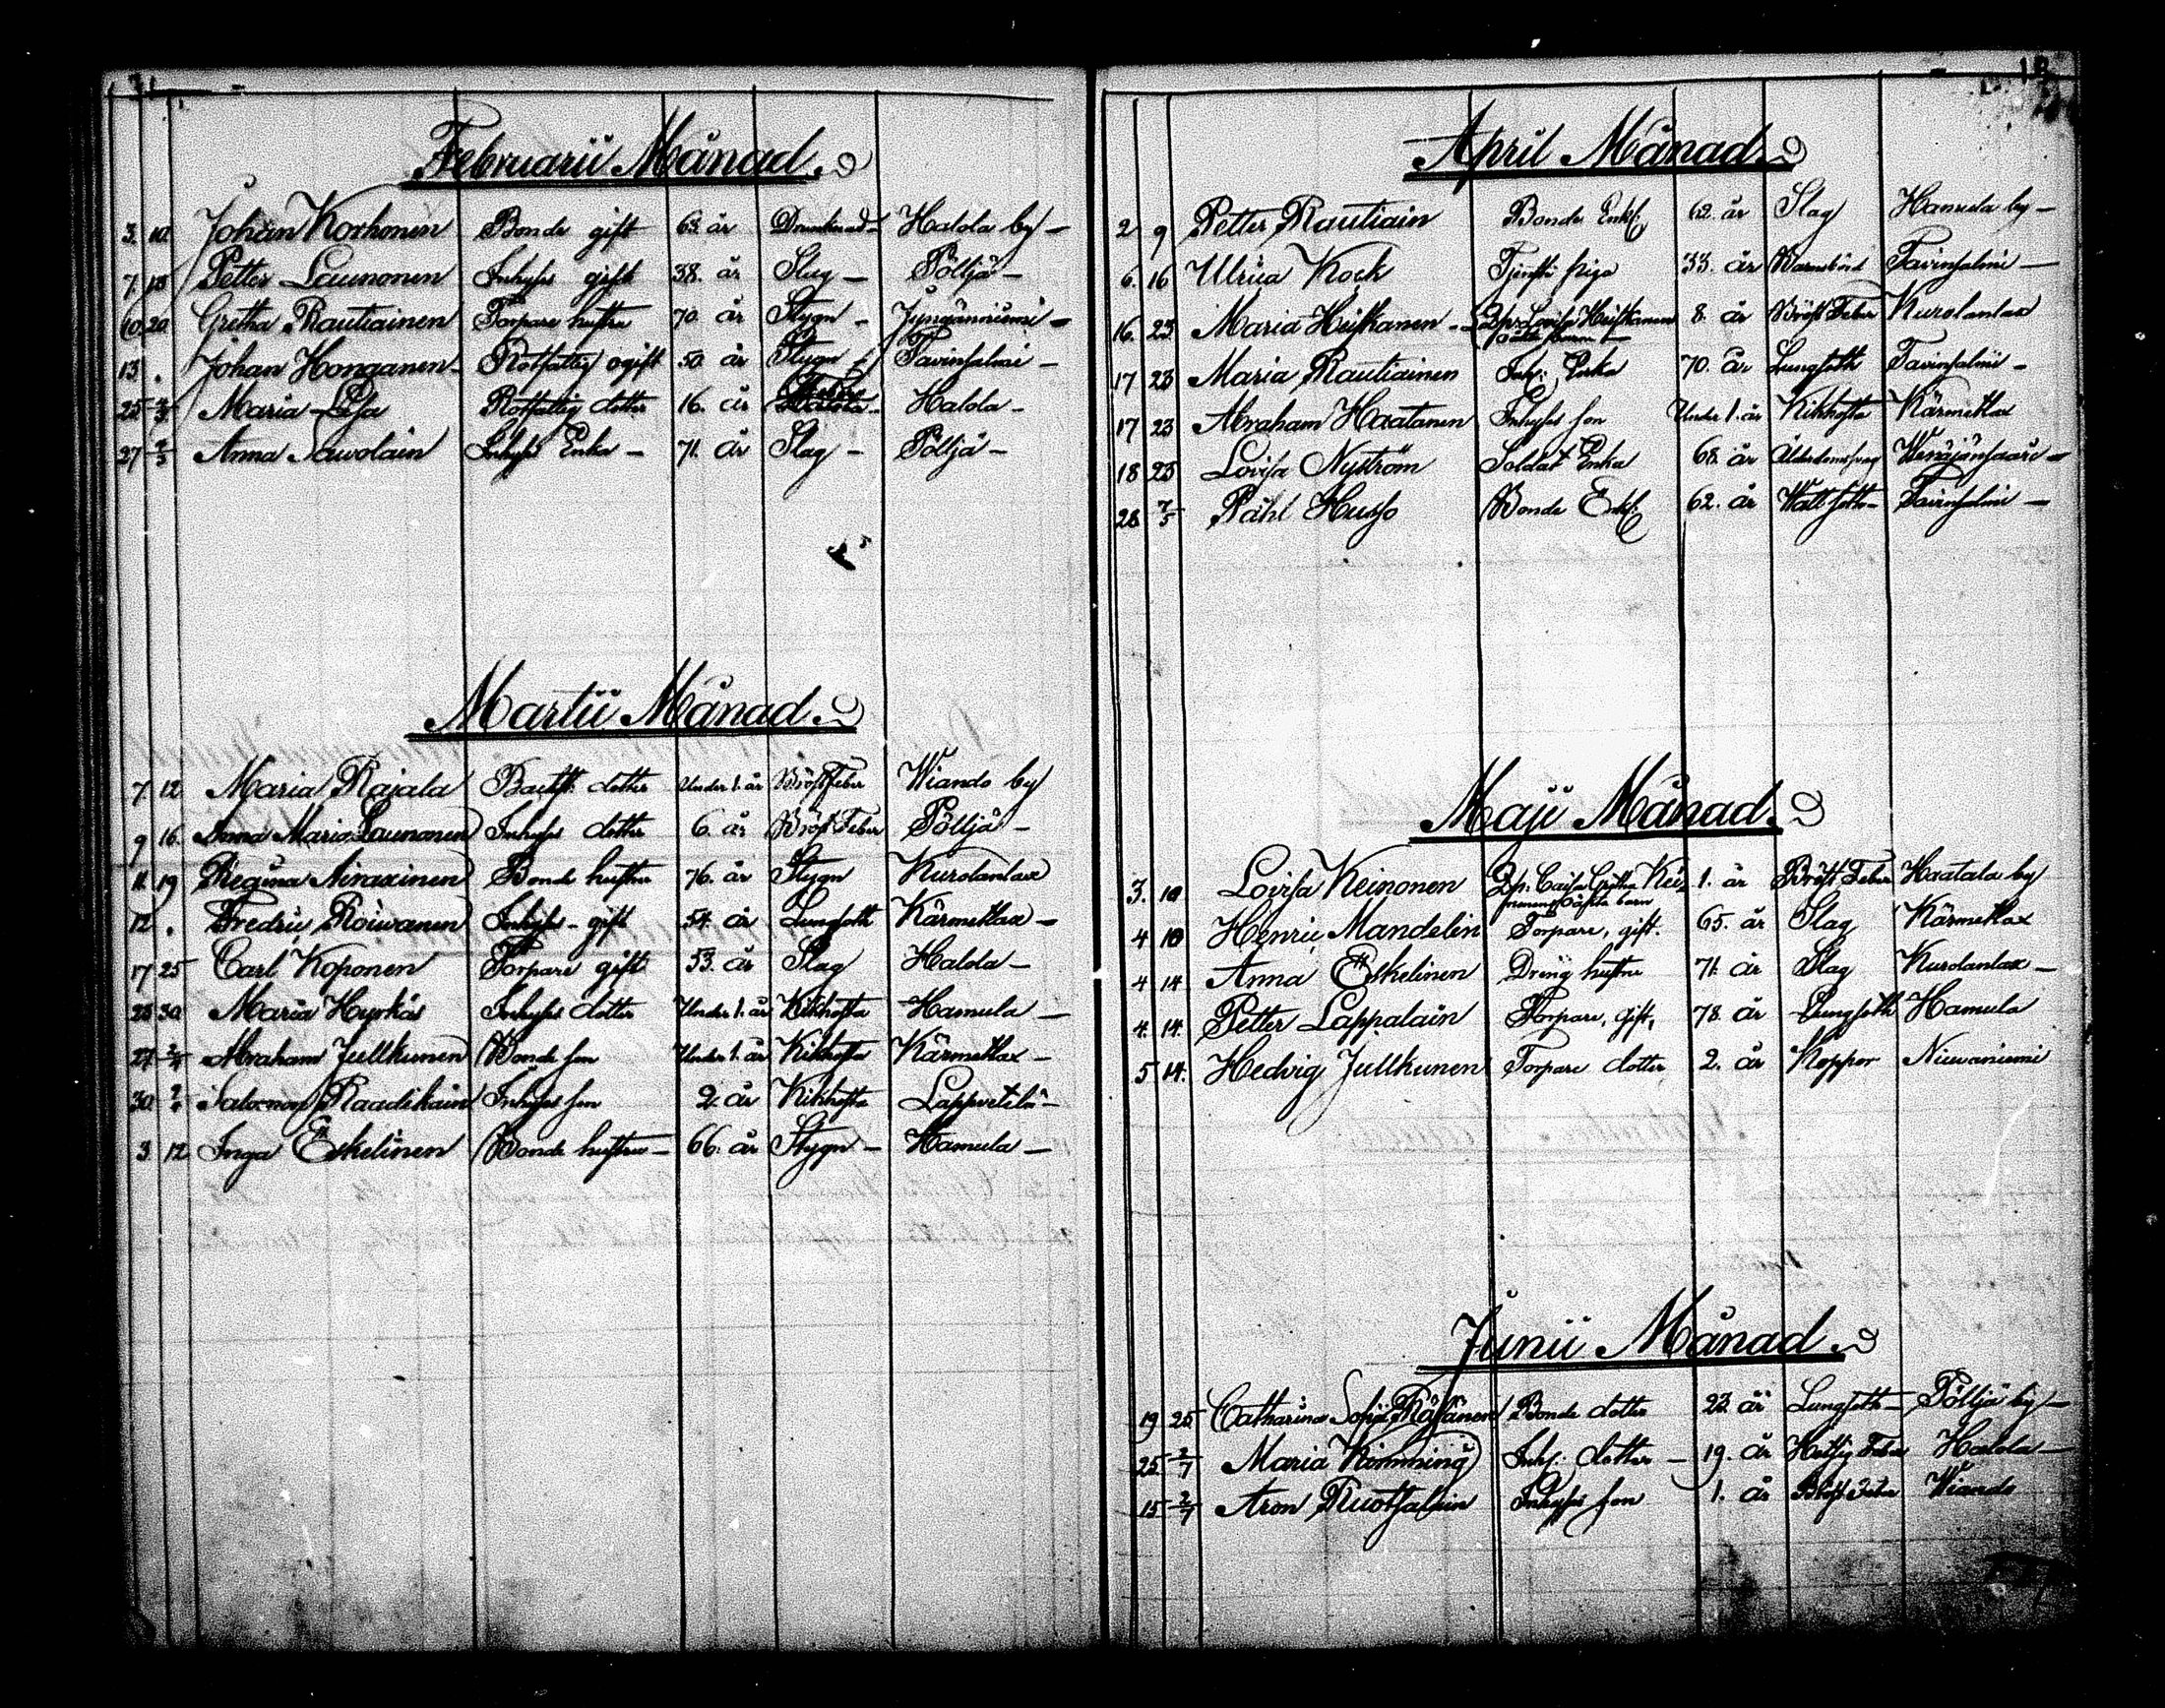 Februarii Månad.
3. 10. Johan Korhonen Bonde gift 63. år Drunknad - Halola by -
7. 13 Petter Launonen Inhyses gift 38. år Slag - Pölljä -
10. 20 Gretha Rautiainen Torpare hustru 70. år Stygn - Jyngänniemi -
13 . Johan Honganen - Rotfattig ogift 50. år Stygn - Tavinsalmi -
25 2/3 Maria Lisa Rotfattig dotter 16. år Halola -
27 2/3 Anna Sawolain Inhyses Enka - 71. år Slag - Pölljä -
Martii Månad.
7. 12 Maria Rajala dotter Under 1. år BröstFeber Wiando by
9 16. Anna Maria Launonen Inhyses dotter 6. år Bröst Feber Pölljä -
11. 19 Regina Airaxinen Bonde hustru 76. år Stygn Kurolanlax
12 . Fredric Roiwanen Inhyses - gift 54. år Lungsoth Kärmetlax -
17 25 Carl Koponen Torpare gift 53. år Slag Halola -
28 30 Maria Hyrkäs Inhyses dotter Under 1. år Kikhosta Hamula -
27. 2/4 Abraham Jullkunen Bonde son Under 1. år Kikhosta Kärmetlax -
30. Salomon Raadikain Inhyses son 2. år Kikhosta Lappvetelä -
3 12 Inga Eskelinen Bonde hustru - 66. år Stygn - Hamula -
April Månad.
2 9 Petter Rautiain Bonde Enkl. 62. år Slag Hamula by -
6. 16 Ulrica Kock Tjenste piga 33. år Barnsbörd Tavinsalmi -
16. 23 Maria Heiskanen - Lovisa Heiskanens 8. år Bröst Feber Kurolanlax
17 23 Maria Rautiainen Inh: Enka 70. år Lungsoth Tavinsalmi -
17 23 Abraham Haatanen Inhyses son Under 1. år Kikhosta Kärmetlax
18 23 Lovisa Nyström Soldat Enka 68. år Ålderdomsswag Wenäjänsaari -
28 7/5 Påhl Husso Bonde Enkl. 62. år Watt soth - Tavinsalmi -
Maji Månad.
3. 10 Lovisa Keinonen Caisa Gretha Kei- 1. år Bröst Feber Haatala by
nonens oäkta barn
4 10 Henric Mandelin Torpare, gift. 65. år Slag Kärmetlax
4 14 Anna Eskelinen Dräng hustru 71. år Slag Kurolanlax -
4. 14. Petter Lappalain Torpare, gift, 78. år Lungsoth Hamula
5 14. Hedvig Jullkunen Torpare dotter 2. år Koppor Niuwaniemi
Junii Månad.
19 25 Catharina Sofia Räsänen Bonde dotter 23. år Lungsoth - Pölljä by -
25 2/7 Maria Kimming Inhs. dotter - 19. år Hettsig Feber Halola -
15 2/7 Aron Ruotsalain Inhyses son 1. år Bröst Feber Wiando